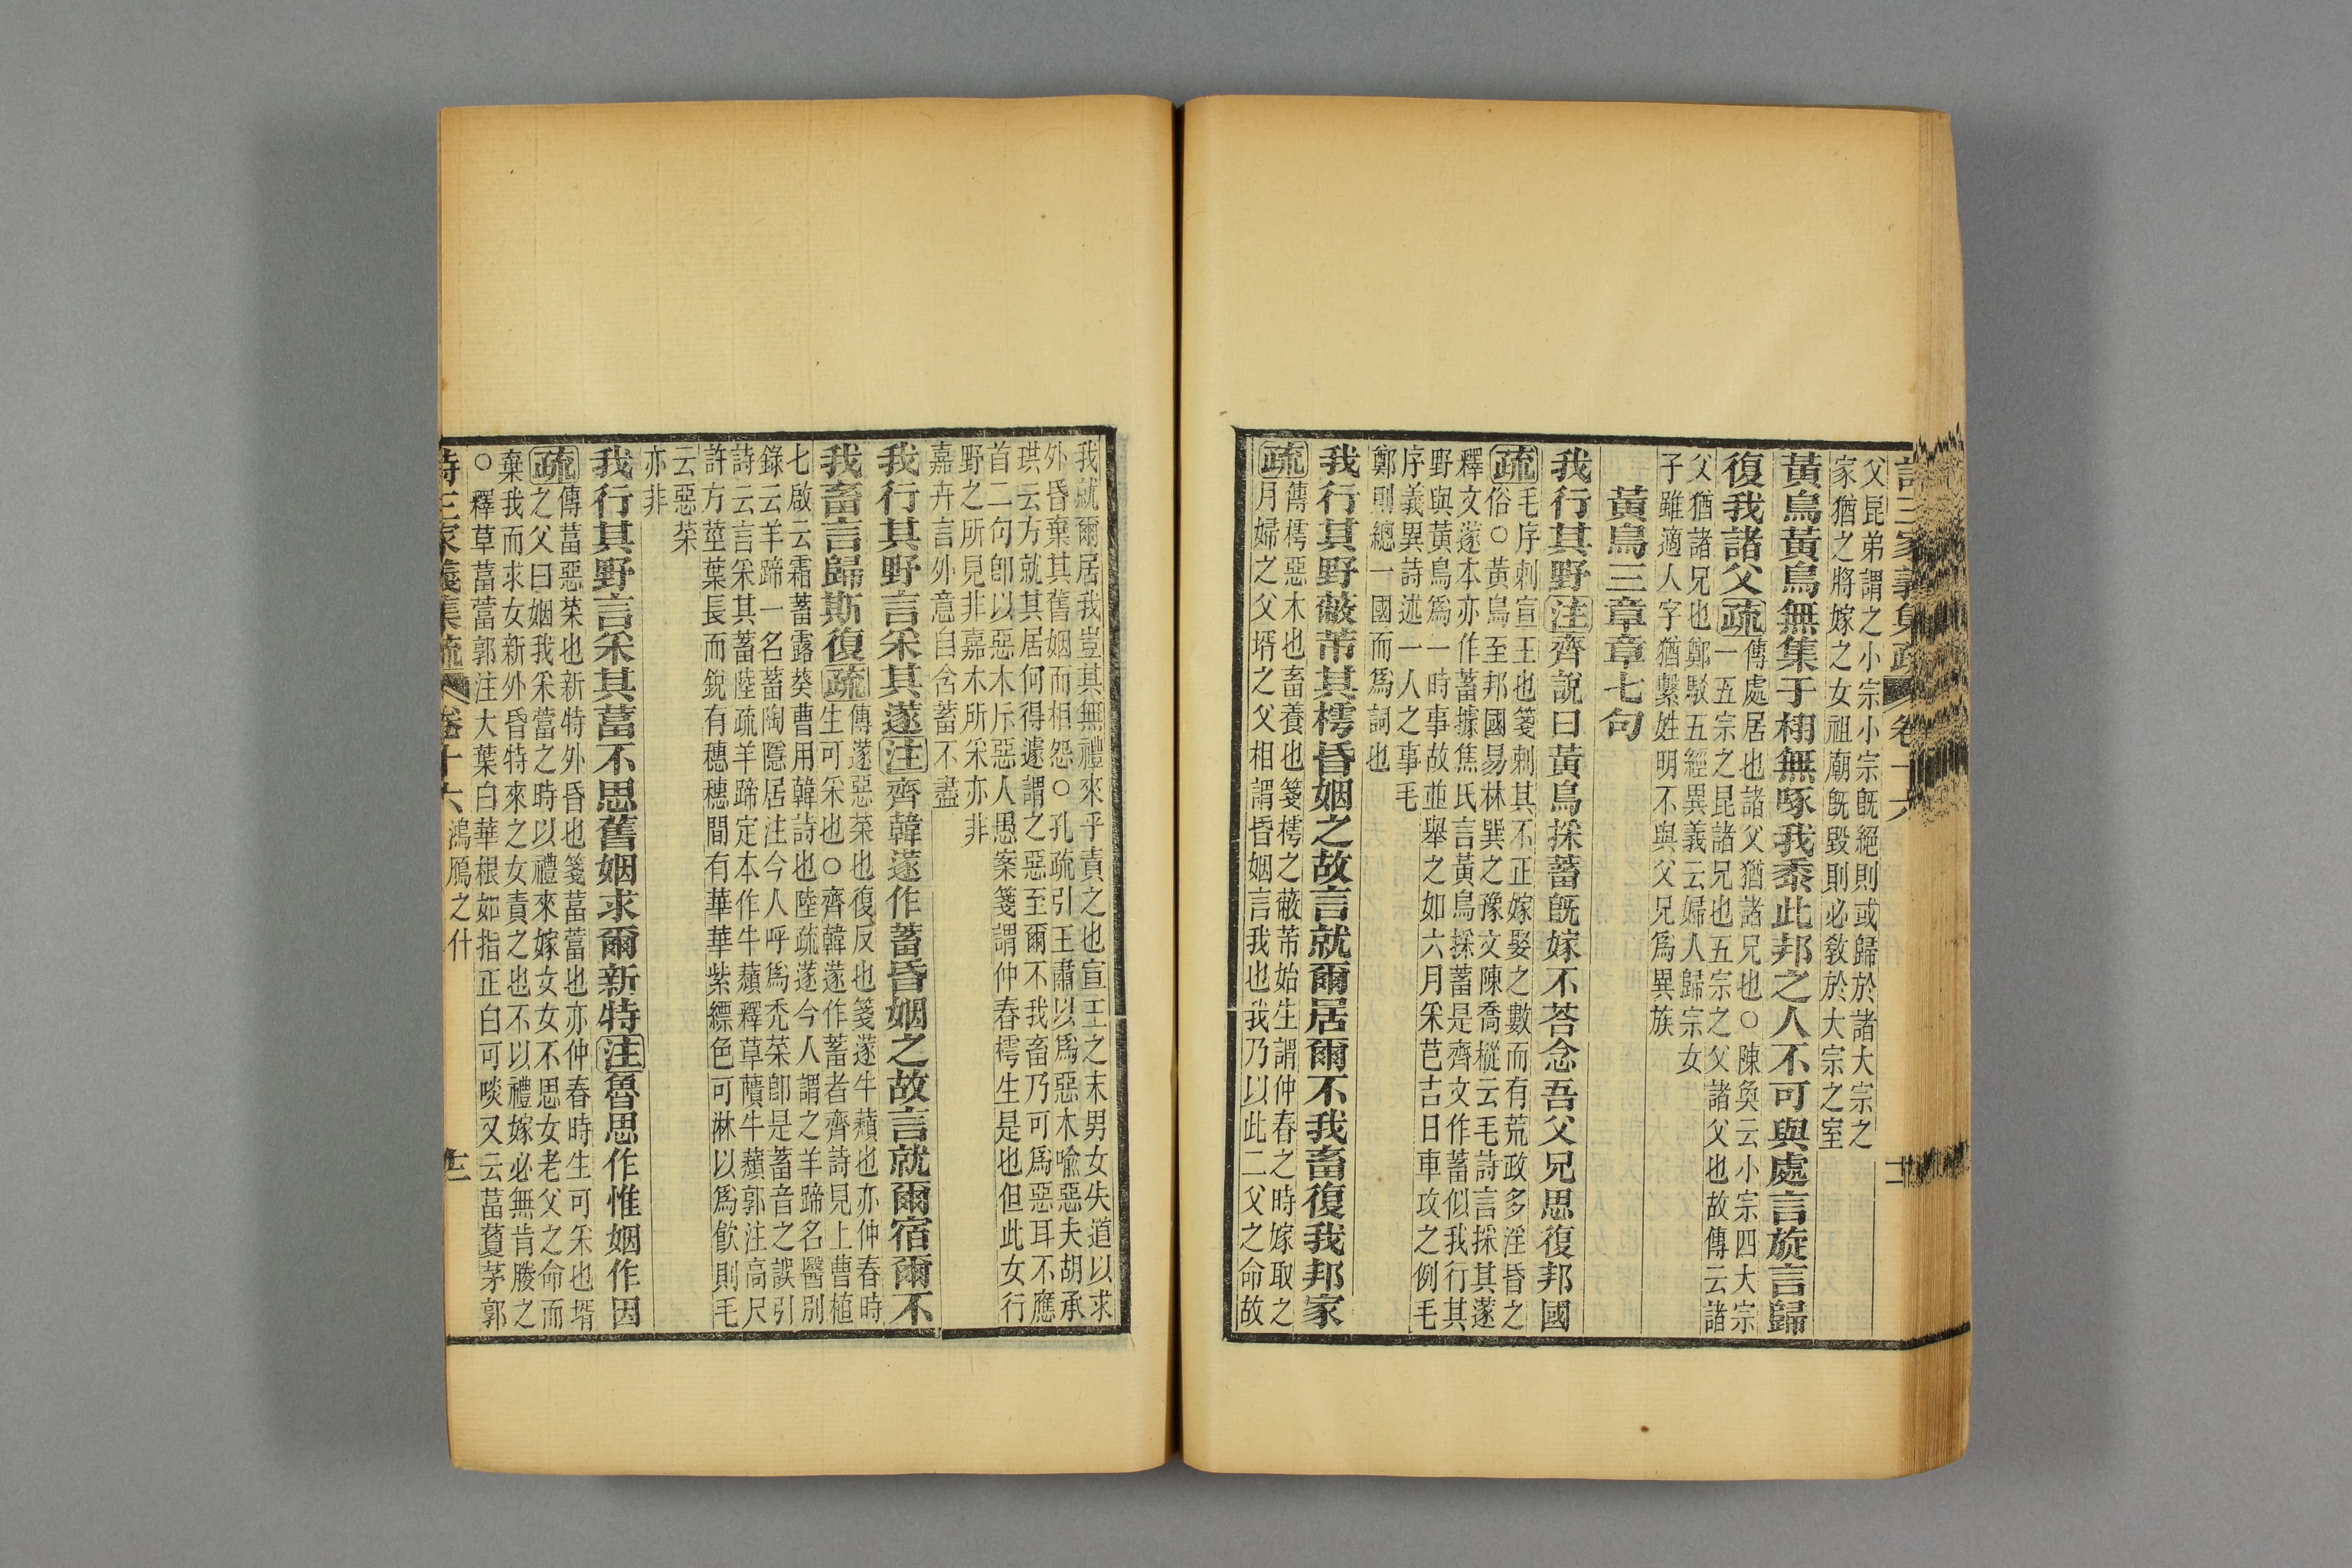 詩三家義集疏 卷十六
父昆弟謂之小宗小宗旣絕則或歸於諸大宗之
家猶之將嫁之女祖廟旣毀則必敎於大宗之室
黃鳥黃鳥無集于栩無啄我黍此邦之人不可與處言旋言歸
復我諸父疏傳處居也諸父猶諸兄也○陳奐云小宗四大宗
一五宗之昆諸兄也五宗之父諸父也故傳云諸
父猶諸兄也鄭駁五經異義云婦人歸宗女
子雖適人字猶繫姓明不與父兄爲異族
黃鳥三章章七句
我行其野注齊說曰黃鳥採蓄旣嫁不荅念吾父兄思復邦國
疏毛序刺宣王也箋刺其不正嫁娶之數而有荒政多淫昏之
俗○黃鳥至邦國易林巽之豫文陳喬樅云毛詩言採其蓫
釋文蓫本亦作蓄據焦氏言黃鳥採蓄是齊文作蓄似我行其
野與黃鳥爲一時事故並舉之如六月采芑吉日車攻之例毛
序義異詩述一人之事毛
鄭則總一國而爲詞也
我行其野蔽芾其樗昏姻之故言就爾居爾不我畜復我邦家
疏傳樗惡木也畜養也箋樗之蔽芾始生謂仲春之時嫁取之
月婦之父壻之父相謂昏姻言我也我乃以此二父之命故
我就爾居我豈其無禮來乎責之也宣王之末男女失道以求
外昏棄其舊姻而相怨○孔疏引王肅以爲惡木喻惡夫胡承
珙云方就其居何得遽謂之惡至爾不我畜乃可爲惡耳不應
首二句卽以惡木斥惡人愚案箋謂仲春樗生是也但此女行
野之所見非嘉木所采亦非
嘉卉言外意自含蓄不盡
我行其野言采其蓫注齊韓蓫作蓄昏姻之故言就爾宿爾不
我畜言歸斯復疏傳蓫惡菜也復反也箋蓫牛蘈也亦仲春時
生可采也○齊韓蓫作蓄者齊詩見上曹植
七啟云霜蓄露葵曹用韓詩也陸疏蓫今人謂之羊蹄名醫別
錄云羊蹄一名蓄陶隱居注今人呼爲禿菜卽是蓄音之誤引
詩云言采其蓄陸疏羊蹄定本作牛蘈釋草藬牛蘈郭注高尺
許方莖葉長而銳有穗穗間有華華紫縹色可淋以爲飮則毛
云惡菜
亦非
我行其野言采其葍不思舊姻求爾新特注魯思作惟姻作因
疏傳葍惡菜也新特外昏也箋葍䔰也亦仲春時生可采也壻
之父曰姻我采葍之時以禮來嫁女女不思女老父之命而
棄我而求女新外昏特來之女責之也不以禮嫁必無肯媵之
○釋草葍䔰郭注大葉白華根如指正白可啖又云葍藑茅郭
詩三家義集疏 卷十六 鴻鴈之什 十二